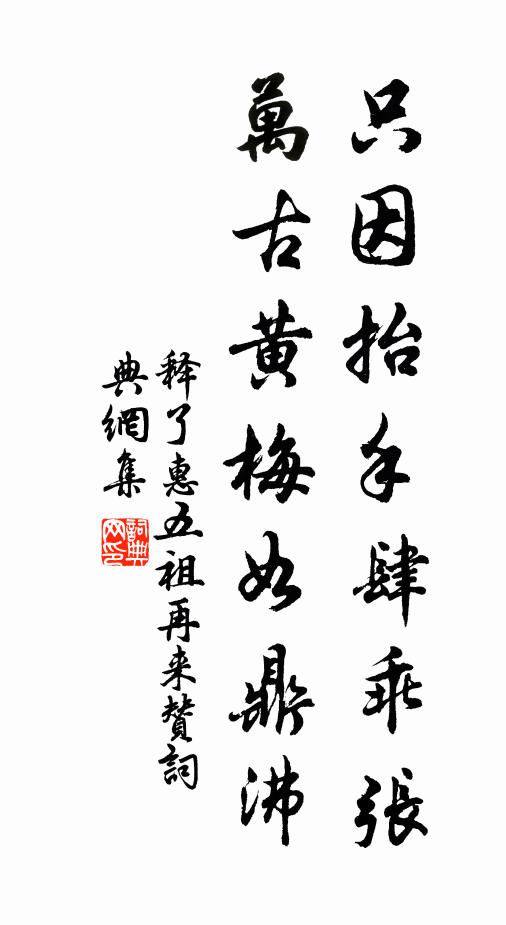 只因抬手肆乖張
萬古黃梅如鼎沸
释了惠五祖再来贊詞
典網集
詞典
网印